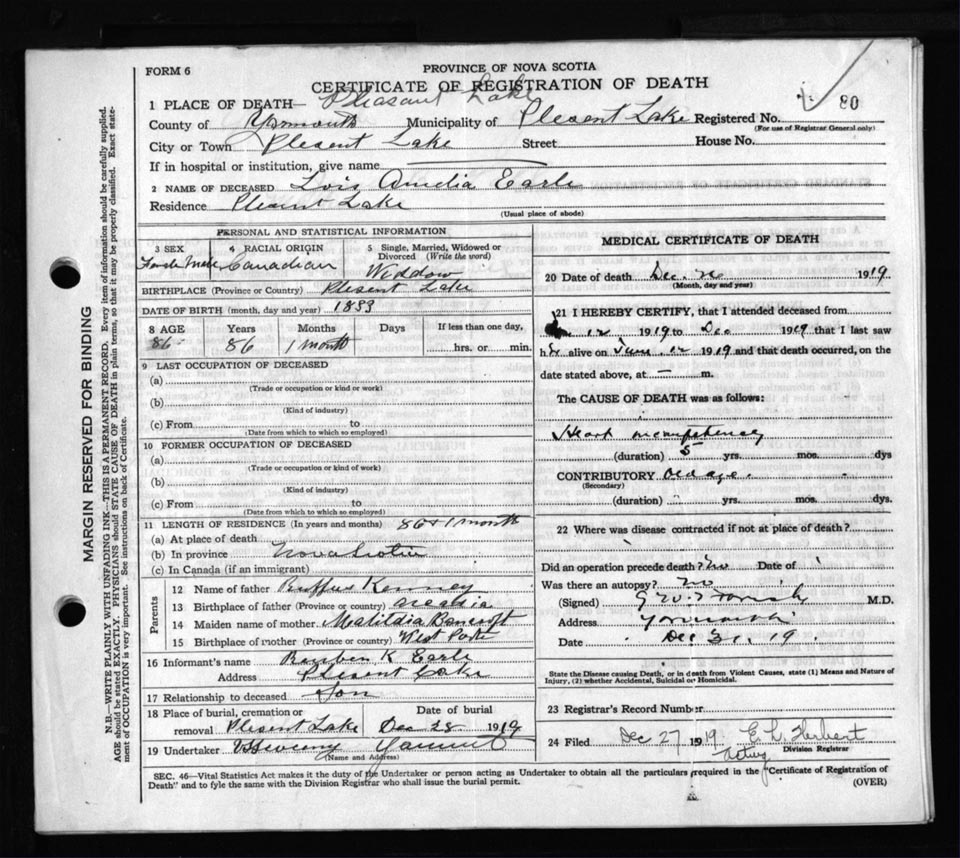 FORM 6
PROVINCE OF NOVA SCOTIA
CERTIFICATE OF REGISTRATION OF DEATH
80
1 PLACE OF DEATH— Pleasant Lake
County of Yarmouth Municipality of Plesent Lake Registered No.
(For use of Registrar General only)
City or Town Plesent Lake Street House No.
If in hospital or institution, give name
2 NAME OF DECEASED Lois Amelia Earle
Residence Plesent Lake
(Usual place of abode)
PERSONAL AND STATISTICAL INFORMATION
3 SEX 4 RACIAL ORIGIN 5 Single, Married, Widowed or Divorced (Write the word)
Canadian Widdow
BIRTHPLACE (Province or Country) Plesent Lake
DATE OF BIRTH (month, day and year) 1833
8 AGE Years Months Days If less than one day,
86 86 1 month hrs. or min.
9 LAST OCCUPATION OF DECEASED
(a)
(Trade or occupation or kind or work)
(b)
(Kind of industry)
(c) From to
(Date from which to which so employed)
10 FORMER OCCUPATION OF DECEASED
(a)
(Trade or occupation or kind of work)
(b)
(Kind of industry)
(c) From to
(Date from which to which so employed)
11 LENGTH OF RESIDENCE (In years and months) 86 & 1 month
(a) At place of death
(b) In province Novascotia
(c) In Canada (if an immigrant)
Parents
12 Name of father Ruffus Kenney
13 Birthplace of father (Province or country)
14 Maiden name of mother Matildia Bancroft
15 Birthplace of mother (Province or country) West
16 Informant's name Reuben K Earle
Address Plesent Lake
17 Relationship to deceased Son
18 Place of burial, cremation or removal Plesent Lake Date of burial Dec 28 1919
19 Undertaker
(Name and Address)
MEDICAL CERTIFICATE OF DEATH
20 Date of death Dec. 26 1919
(Month, day and year)
21 I HEREBY CERTIFY, that I attended deceased from
12 1919 to Dec 1919 that I last saw
her alive on June 12 1919 and that death occurred, on the
date stated above, at — m.
The CAUSE OF DEATH was as follows:
Heart
(duration) 5 yrs. mos. dys
CONTRIBUTORY Old age
(Secondary)
(duration) yrs. mos. dys.
22 Where was disease contracted if not at place of death?
Did an operation precede death? No Date of
Was there an autopsy? No
(Signed) M.D.
Address Yarmouth
Date Dec 21. 19.
State the Disease causing Death, or in death from Violent Causes, state (1) Means and Nature of
Injury, (2) whether Accidental, Suicidal or Homicidal.
23 Registrar's Record Number
24 Filed Dec 27 1919 E. L. Herbert
Acting Division Registrar
SEC. 46—Vital Statistics Act makes it the duty of the Undertaker or person acting as Undertaker to obtain all the particulars required in the "Certificate of Registration of
Death" and to fyle the same with the Division Registrar who shall issue the burial permit. (OVER)
MARGIN RESERVED FOR BINDING
N.B.—WRITE PLAINLY WITH UNFADING INK—THIS IS A PERMANENT RECORD. Every item of information should be carefully supplied.
AGE should be stated EXACTLY. PHYSICIANS should STATE CAUSE OF DEATH in plain terms, so that it may be properly classified. Exact statement
of OCCUPATION is very important. See instructions on back of Certificate.